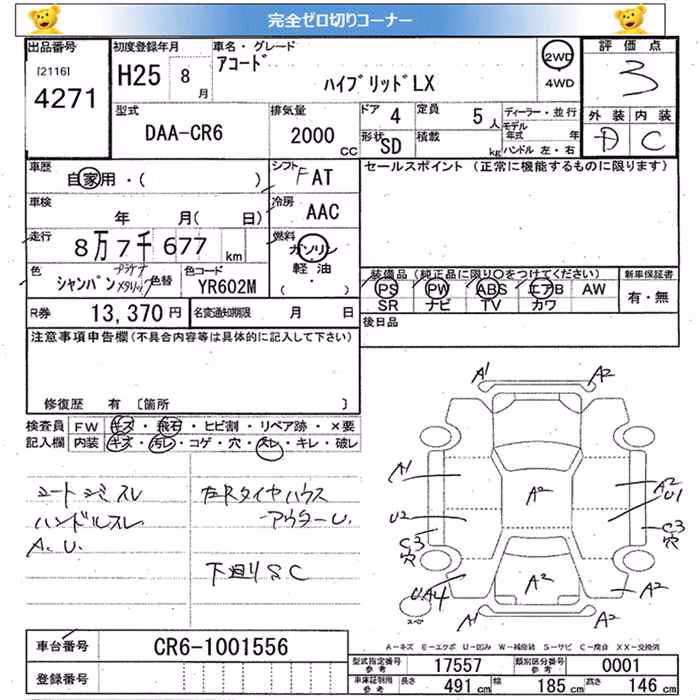 完全ゼロ切りコーナー
出品番号
[2116]
4271
初度登録年月
H25 8月
車名・グレード
アコード
ハイブリッドLX
2WD
4WD
評価点
3
外装 内装
D C
型式
DAA-CR6
排気量
2000CC
ドア 4
定員 5人
形状 SD
積載 kg
ディーラー・並行
モデル年式 年
ハンドル 左・右
車歴
自家用・( )
シフト
FAT
車検
年 月( 日)
冷房
AAC
走行
8万7千677km
燃料
ガソリン
軽油
( ・ )
色
シャンパンプラチナメタリック
色替
色コード
YR602M
R券 13,370円
名変通知期限 月 日
セールスポイント(正常に機能するものに限ります)
装備品(純正品に限り〇をつけてください)
PS PW ABS エアB AW
SR ナビ TV カワ
新車保証書
有・無
後日品
注意事項申告欄(不具合内容等は具体的に記入して下さい)
修復歴 有 〔箇所 〕
検査員記入欄
FW キズ・飛石・ヒビ割・リペア跡・×要
内装 キズ・汚レ・コゲ・穴・スレ・キレ・破レ
シートシミスレ
ハンドルスレ
A.U.
左Rタイヤハウス
アウターU.
下廻りSC
A1 A2
A1
A2
U1
A2
U2
C3
穴
C3
穴
UA4
A2
A2
A1 A2
スペア
A-キズ E-エクボ U-凹み W-補修跡 S-サビ C-腐食 XX-交換済
車台番号 CR6-1001556
登録番号
型式指定番号 参考 17557
類別区分番号 参考 0001
車庫証明用 参考 長さ 491cm 幅 185cm 高さ 146cm